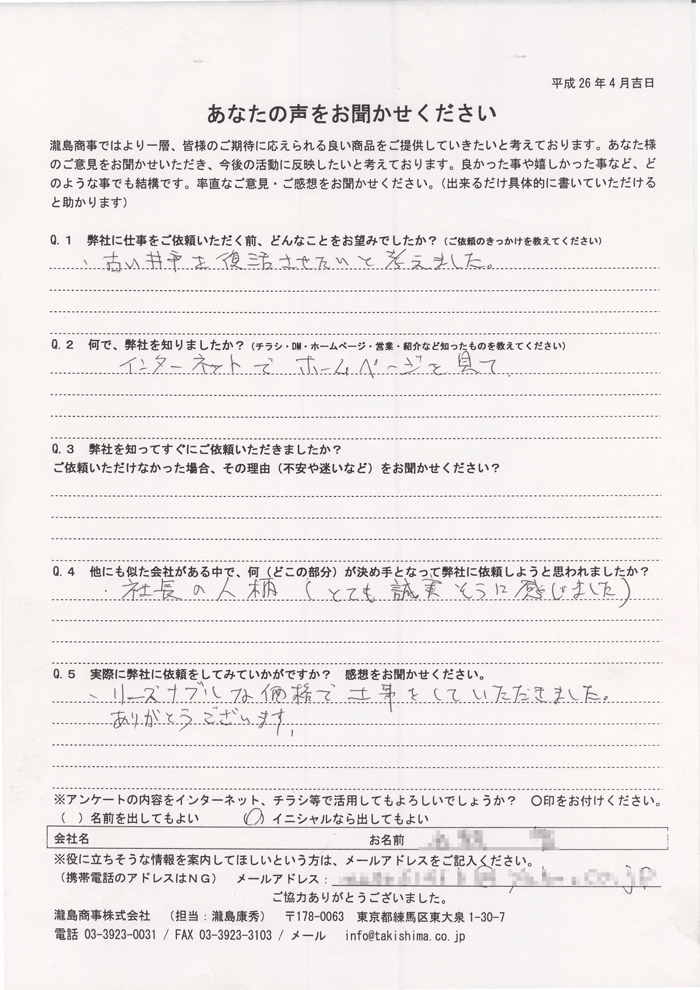 平成26年4月吉日
あなたの声をお聞かせください
瀧島商事ではより一層、皆様のご期待に応えられる良い商品をご提供していきたいと考えております。あなた様
のご意見をお聞かせいただき、今後の活動に反映したいと考えております。良かった事や嬉しかった事など、ど
のような事でも結構です。率直なご意見・ご感想をお聞かせください。（出来るだけ具体的に書いていただける
と助かります）
Q.1 弊社に仕事をご依頼いただく前、どんなことをお望みでしたか？（ご依頼のきっかけを教えてください）
、古い井戸を復活させたいと考えました。
Q.2 何で、弊社を知りましたか？（チラシ・DM・ホームページ・営業・紹介など知ったものを教えてください）
インターネットで ホームページを見て.
Q.3 弊社を知ってすぐにご依頼いただきましたか？
ご依頼いただけなかった場合、その理由（不安や迷いなど）をお聞かせください？
Q.4 他にも似た会社がある中で、何（どこの部分）が決め手となって弊社に依頼しようと思われましたか？
・社長の人柄（とても誠実そうに感じました）
Q.5 実際に弊社に依頼をしてみていかがですか？ 感想をお聞かせください。
、リーズナブルな価格で工事をしていただきました。
ありがとうございます。
※アンケートの内容をインターネット、チラシ等で活用してもよろしいでしょうか？ ○印をお付けください。
（ ）名前を出してもよい （○）イニシャルなら出してもよい
会社名 お名前
※役に立ちそうな情報を案内してほしいという方は、メールアドレスをご記入ください。
（携帯電話のアドレスはNG） メールアドレス：
ご協力ありがとうございました。
瀧島商事株式会社 （担当：瀧島康秀） 〒178-0063 東京都練馬区東大泉1-30-7
電話 03-3923-0031 / FAX 03-3923-3103 / メール info@takishima.co.jp